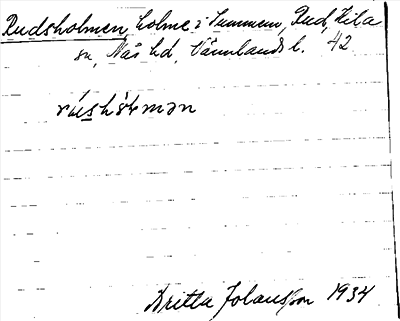 Rudsholmen, holme i Summeln, Rud, Kila
sn, Näs hd, Värmlands l. 42
rúshòɫmən
Britta Johansson 1934